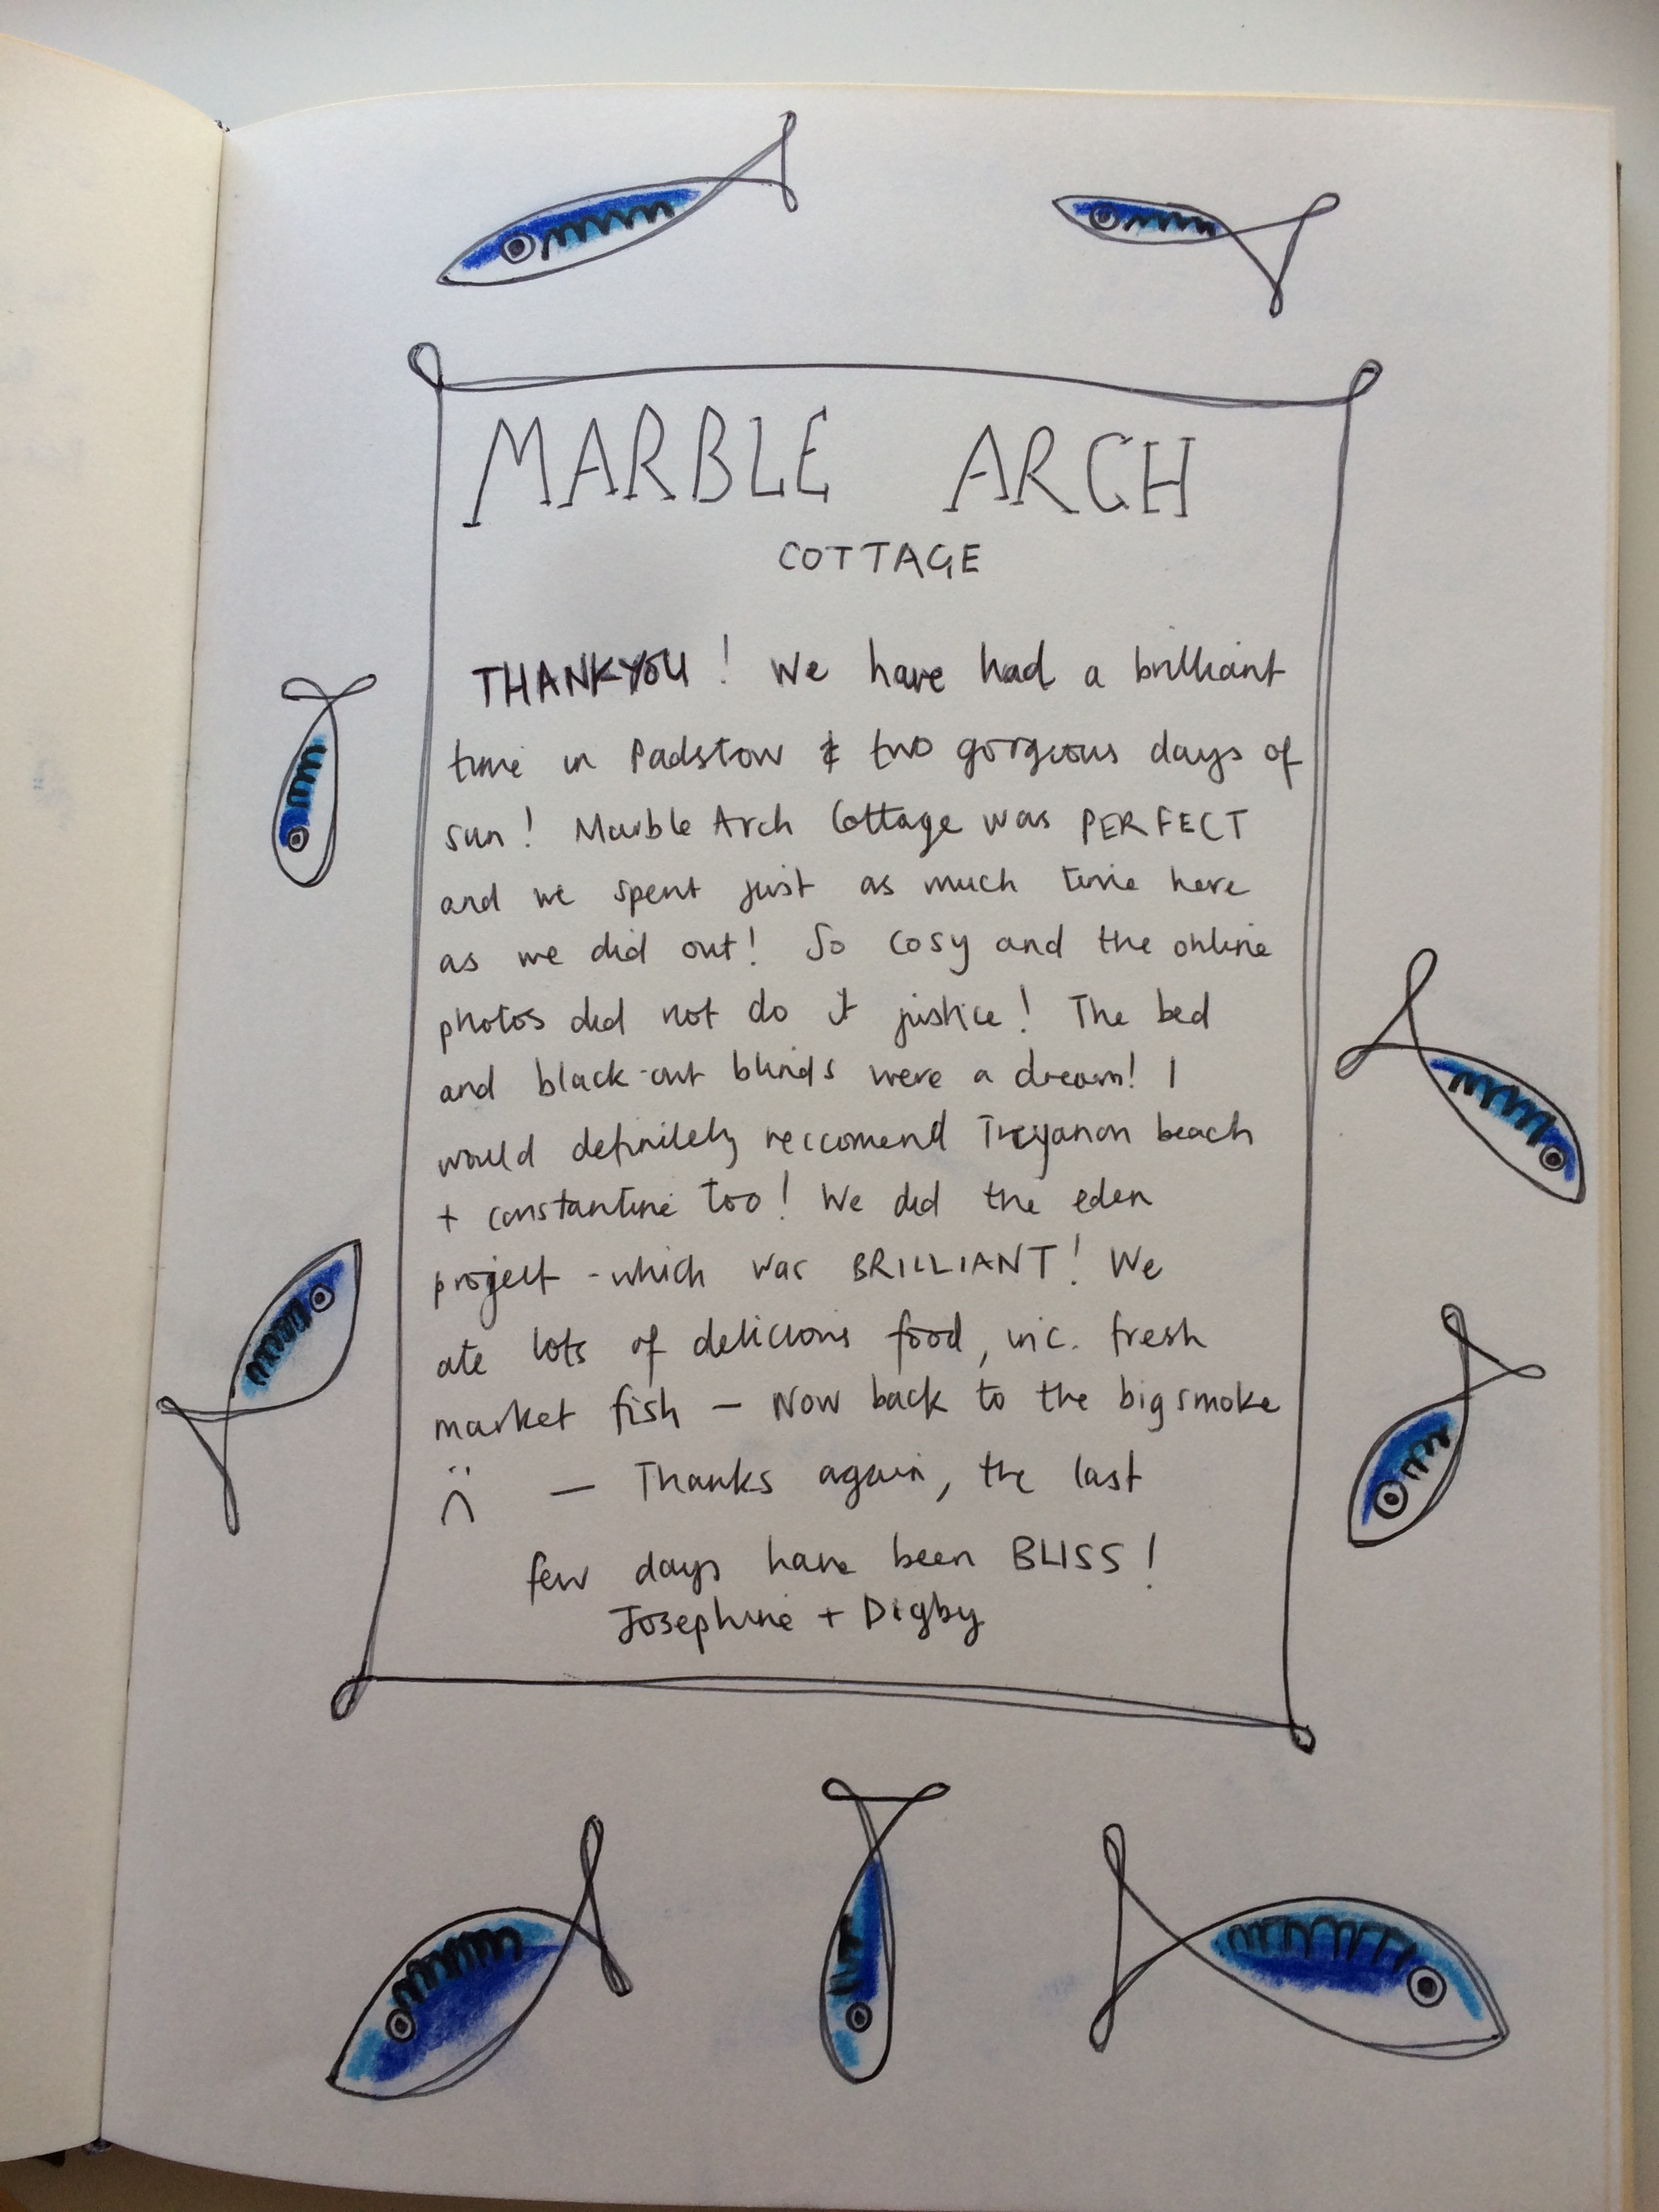 MARBLE ARCH
COTTAGE
THANKYOU! We have had a brilliant
time in Padstow & two gorgeous days of
sun! Marble Arch Cottage was PERFECT
and we spent just as much time here
as we did out! So cosy and the online
photos did not do it justice! The bed
and black-out blinds were a dream! I
would definitely reccomend Treyanon beach
+ constantine too! We did the eden
project - which was BRILLIANT! We
ate lots of delicious food, inc. fresh
market fish — Now back to the big smoke
:( — Thanks again, the last
few days have been BLISS!
Josephine + Digby